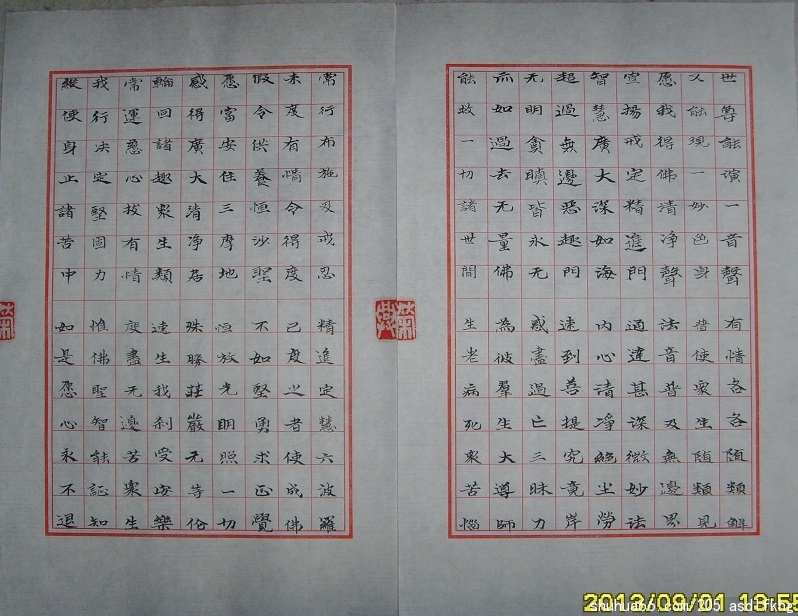 世尊能演一音聲 有情各各隨類解
又能現一妙色身 普使衆生隨類見
愿我得佛清淨聲 法音普及無邊界
宣揚戒定精進門 通達甚深微妙法
智慧廣大深如海 內心清淨絕尘勞
超過無邊惡趣門 速到菩提究竟岸
无明貪瞋皆永无 惑盡過亡三昧力
亦如過去无量佛 為彼羣生大導師
能救一切諸世間 生老病死衆苦惱
常行布施及戒忍 精進定慧六波羅
未度有情令得度 已度之者使成佛
假令供養恒沙聖 不如堅勇求正覺
愿當安住三摩地 恒放光明照一切
感得廣大清淨居 殊勝莊嚴无等倫
輪回諸趣衆生類 速生我刹受安樂
常運慈心拔有情 度盡无邊苦衆生
我行決定堅固力 惟佛聖智能証知
縱使身止諸苦中 如是愿心永不退
2013/09/01 13:55